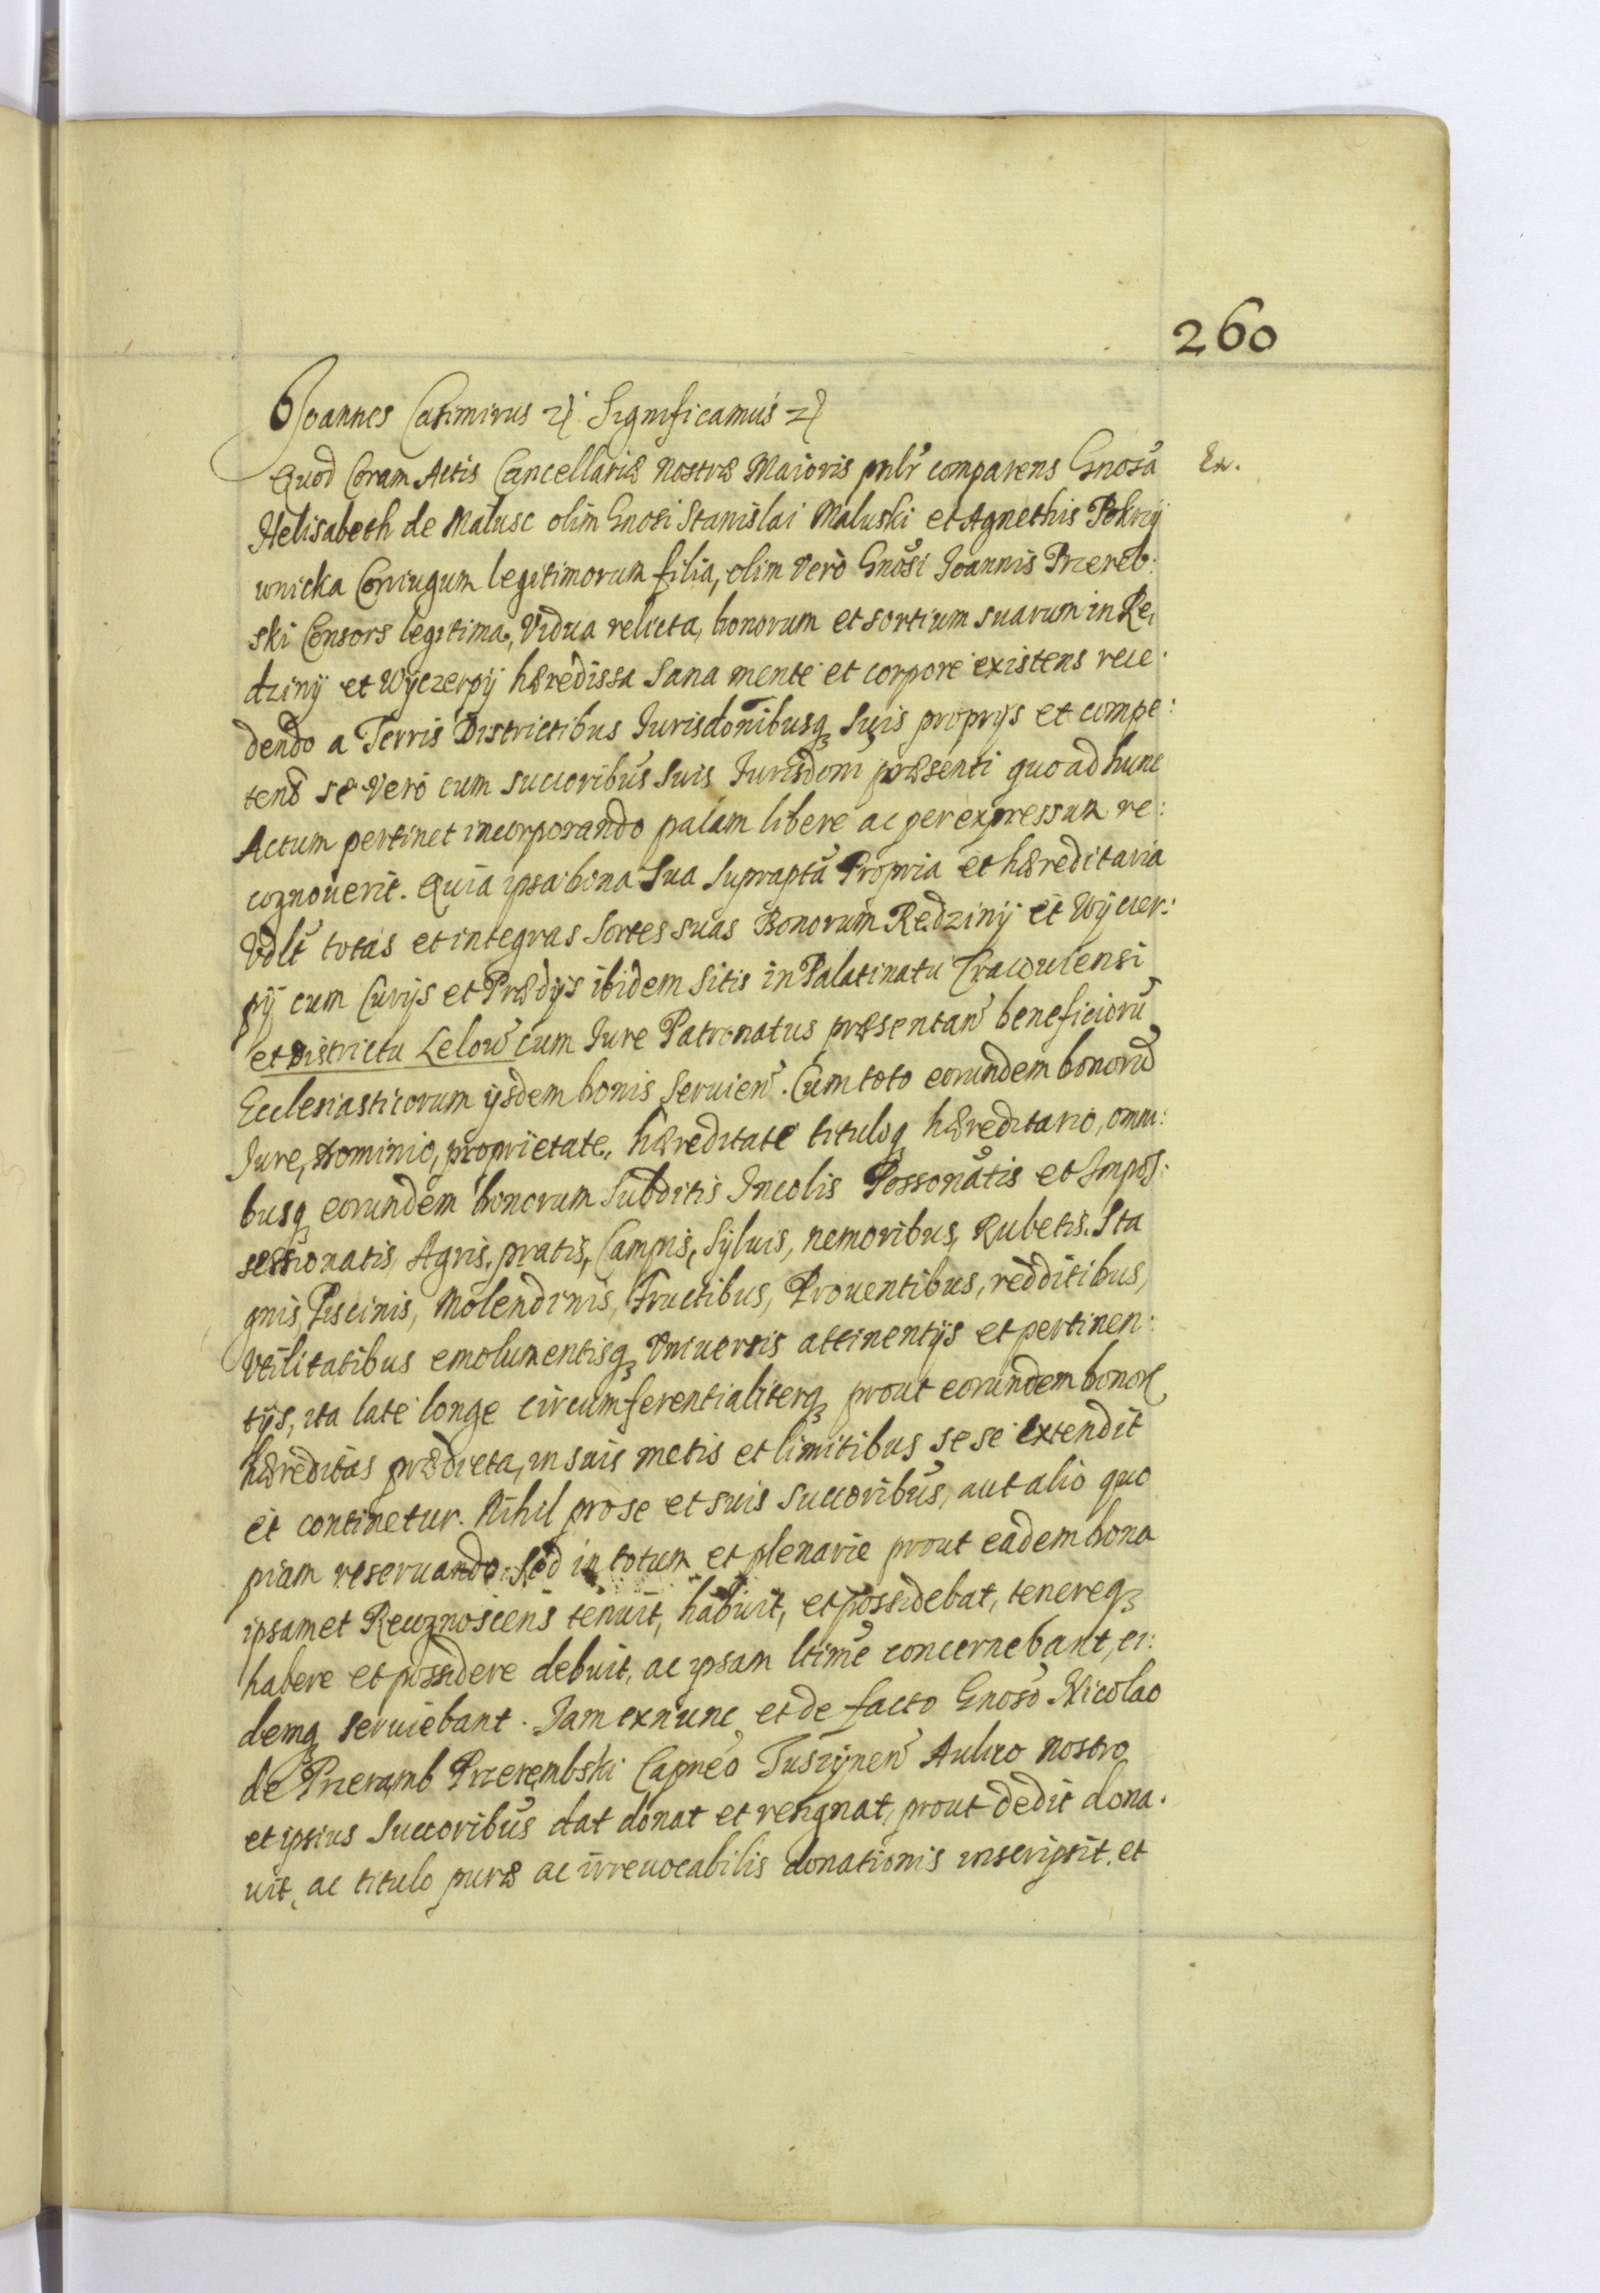 260
Joannes Casimirus &c. Significamus &c.
Quod Coram Actis Cancellariæ Nostræ Maioris pnlr comparens Gnosa
Ex.
Helisabeth de Malusc olim Gnosi Stanislai Maluski et Agnethis Pokrzy
wnicka Coniugum legitimorum filia, olim Vero Gnosi Joannis Przereb:
ski Consors legitima, Vidua relicta, bonorum et sortium suarum in Re,
dziny et Wyczerpy hæredissa Sana mente et corpore existens rece:
dendo a Terris Districtibus Jurisdonibusq Suis proprys et compe:
tend se Vero cum succoribus Suis Jurisdoni præsenti quo ad hunc
Actum pertinet incorporando palam libere ac per expressum re:
cognouerit. Quia ipsa bona Sua Supraptu Propria et hæreditaria
Vdlt totas et integras Sortes suas Bonorum Redziny et Wyczer:
py cum Curys et Prædys ibidem Sitis in Palatinatu Cracouiensi
et Districtu Lelow cum Jure Patronatus præsentan beneficioru
Ecclesiasticorum ysdem bonis Seruien. Cum toto eorundem bonoru
Jure, Dominio, proprietate, hæreditate tituloq hæreditario, omni:
busq eorundem bonorum Subditis Incolis Possonatis et Impos:
sessionatis, Agris, pratis, Campis, Syluis, nemoribus, Rubetis, Sta
gnis, Piscinis, Molendinis, Fructibus, Prouentibus, redditibus,
Vtilitatibus emolumentisq Vniuersis attinentys et pertinen:
tys, ita late longe circumferentialiterq prout eorundem bonor
hæreditas prædicta, in suis metis et limitibus sese extendit
et continetur. Nihil pro se et suis Succoribus, aut alio quo
piam reseruando. Sed in totum et plenarie prout eadem bona
ipsamet Recognoscens tenuit, habuit, et possidebat, tenereq
habere et possidere debuit, ac ipsam ltime concernebant, ei:
demq seruiebant. Jam ex nunc et de facto Gnoso Nicolao
de Przeramb Przerembski Capneo Tuszynen Aulico nostro
et ipsius Succoribus dat donat et resignat, prout dedit dona.
uit, ac titulo puræ ac irreuocabilis donationis inscripsit. et